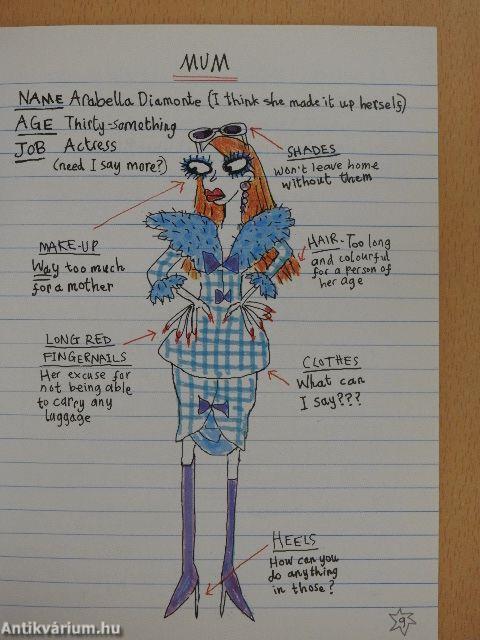 MUM
NAME Arabella Diamonte (I think she made it up herself)
AGE Thirty-something
JOB Actress
(need I say more?)
SHADES
Won't leave home
without them
MAKE-UP
Way too much
for a mother
HAIR - Too long
and colourful
for a person of
her age
LONG RED
FINGERNAILS
Her excuse for
not being able
to carry any
luggage
CLOTHES
What can
I say???
HEELS
How can you
do anything
in those?
9
Antikvárium.hu